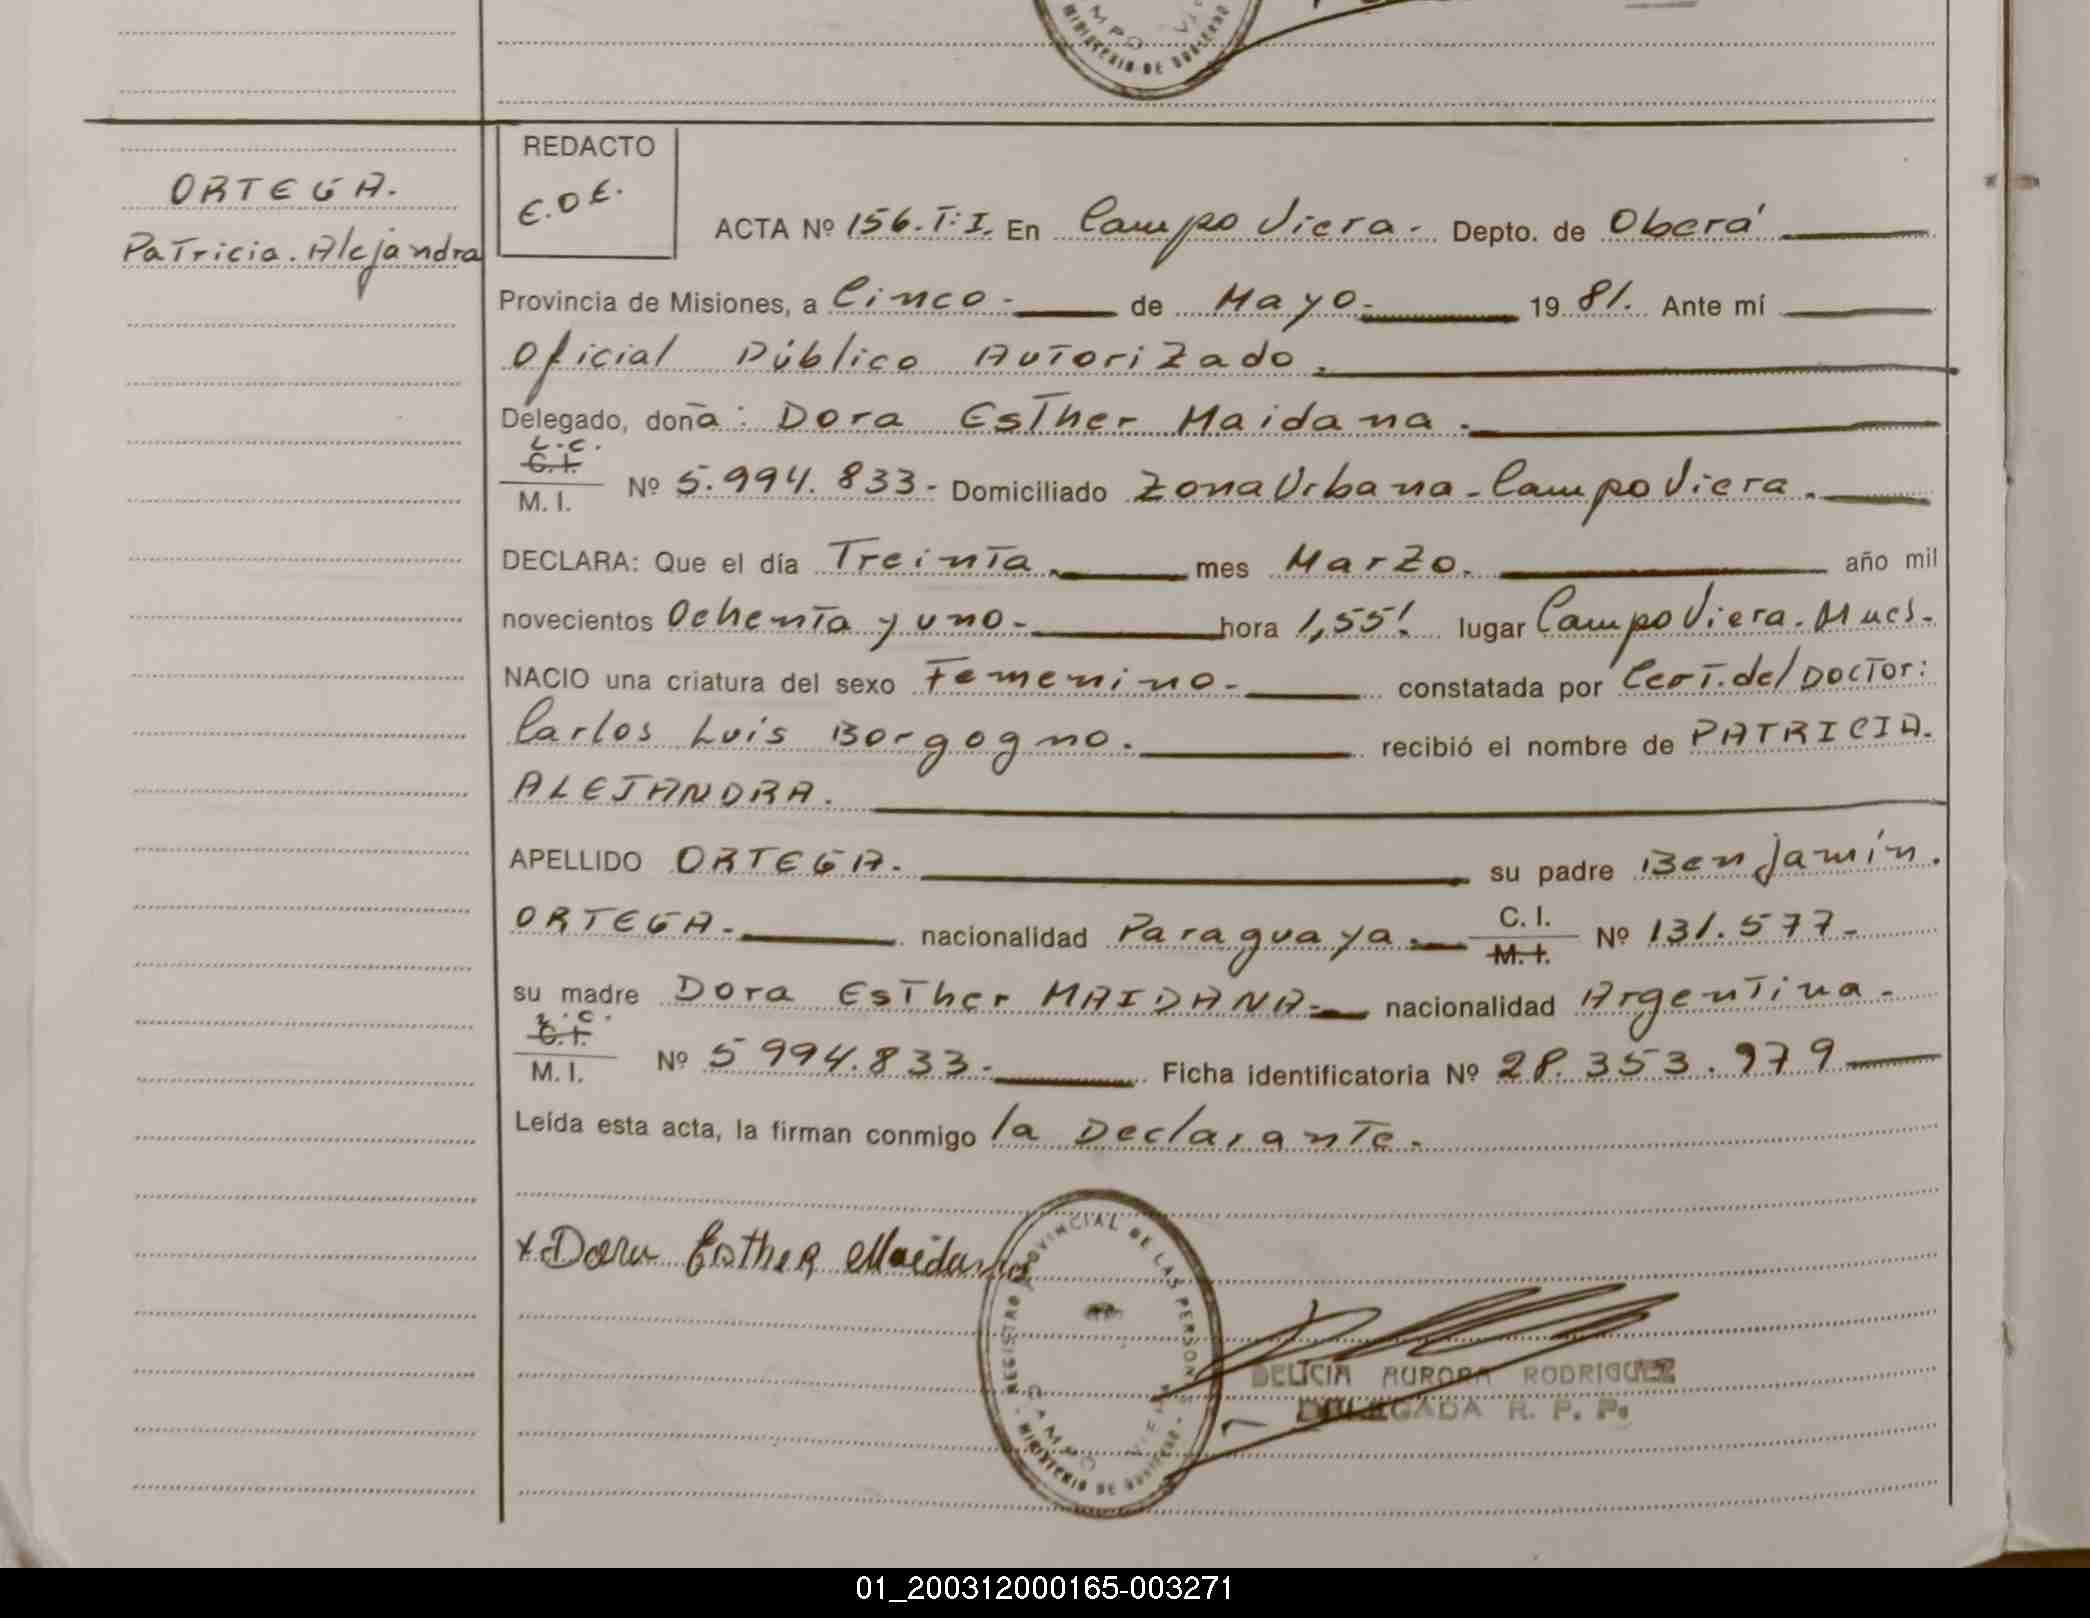 MPO VI
MINISTERIO DE GOBIERNO
ORTEGA.
Patricia. Alejandra
REDACTO
E.D.E.
ACTA Nº 156.T:I. En Campo Viera.- Depto. de Oberá
Provincia de Misiones, a Cinco.- de Mayo.- 1981. Ante mí
Oficial Público Autorizado.
Delegado, doña: Dora Esther Maidana.
L.C.
C.I.
M. I. Nº 5.994.833- Domiciliado Zona Urbana-Campo Viera.
DECLARA: Que el día Treinta. mes Marzo. año mil
novecientos Ochenta y uno- hora 1,55'. lugar Campo Viera. Mnes.
NACIO una criatura del sexo Femenino- constatada por Cert. del Doctor:
Carlos Luis Borgogno. recibió el nombre de PATRICIA.
ALEJANDRA.
APELLIDO ORTEGA. su padre Benjamín.
ORTEGA.- nacionalidad Paraguaya. C. I. M. I. Nº 131.577-
su madre Dora Esther MAIDANA- nacionalidad Argentina-
L.C.
C.I.
M. I. Nº 5 994.833- Ficha identificatoria Nº 28.353.979
Leída esta acta, la firman conmigo la Declarante.
x Dora Esther Maidana
REGISTRO PROVINCIAL DE LAS PERSONAS
CAMPO VIERA
MINISTERIO DE GOBIERNO
DELICIA AURORA RODRIGUEZ
DELEGADA R. P. P.
01_200312000165-003271